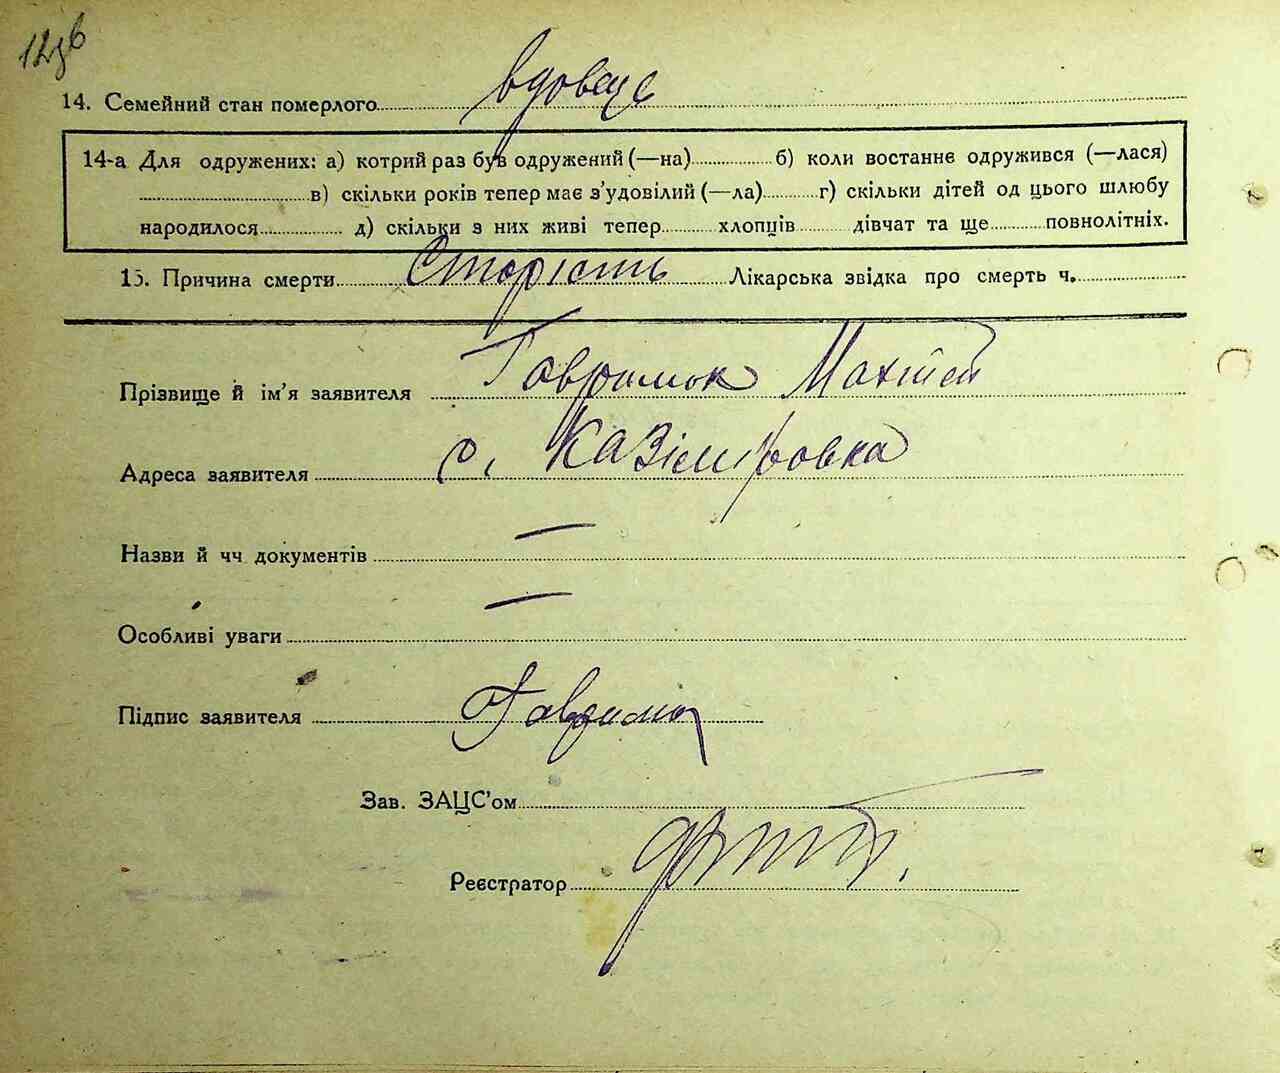 12зв
14. Семейний стан померлого вдовець
14-а Для одружених: а) котрий раз був одружений (—на) б) коли востаннє одружився (—лася)
в) скільки років тепер має з'удовілий (—ла) г) скільки дітей од цього шлюбу
народилося д) скільки з них живі тепер хлопців дівчат та ще повнолітніх.
15. Причина смерти Старість Лікарська звідка про смерть ч.
Прізвище й ім'я заявителя Гаврилюк Махтей
Адреса заявителя с. Казіміровка
Назви й чч документів —
Особливі уваги —
Підпис заявителя
Зав. ЗАЦС'ом
Реєстратор